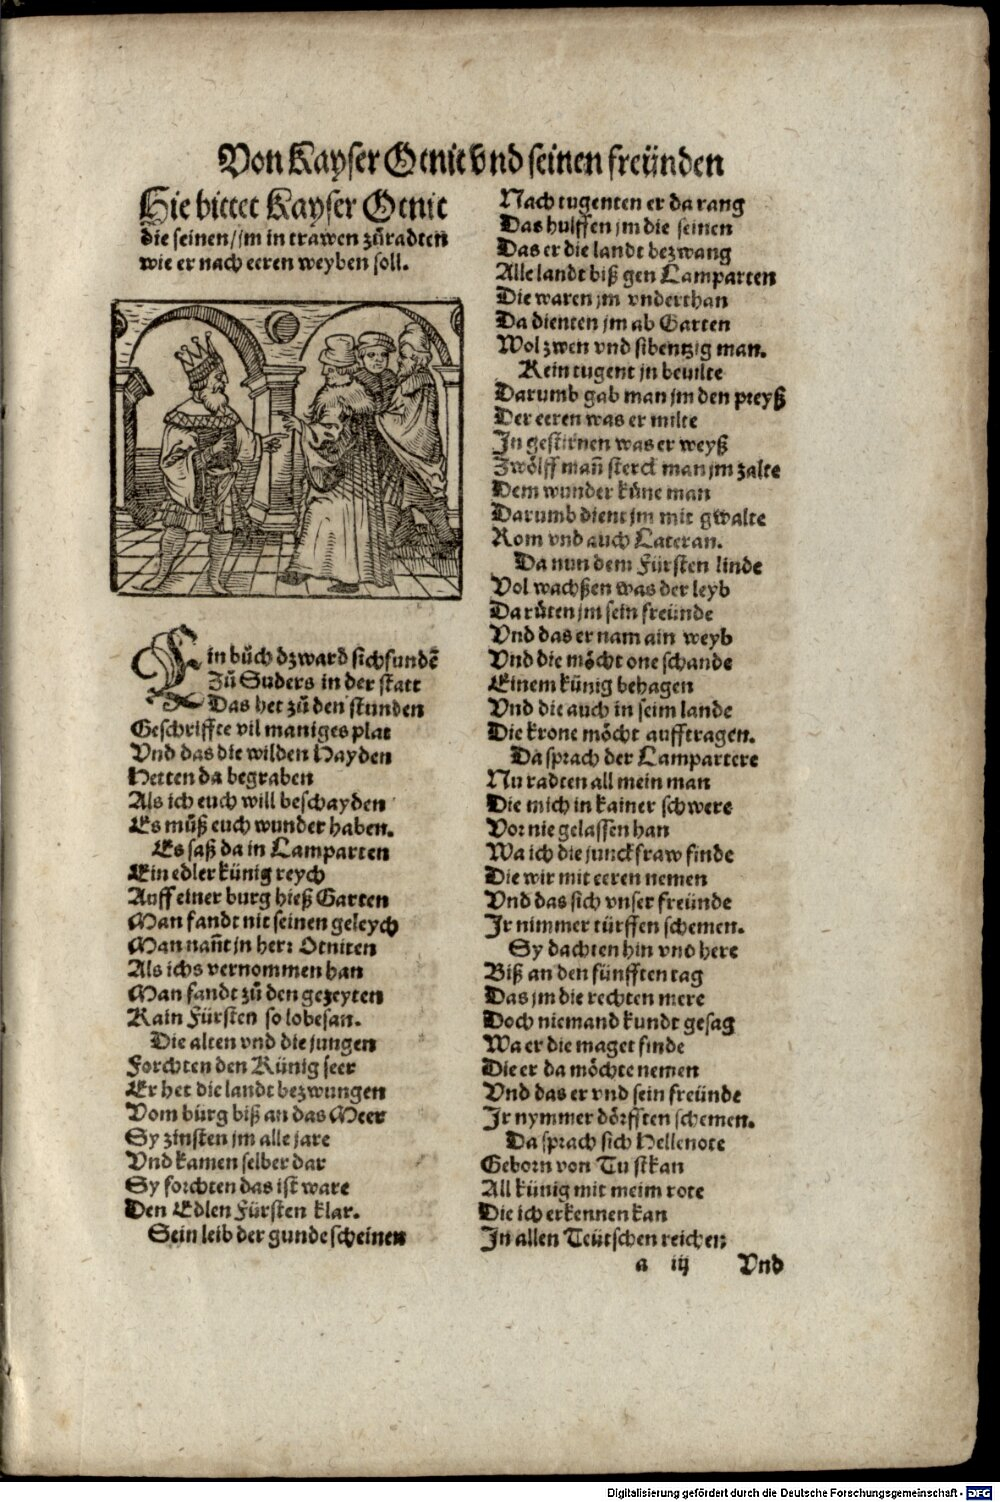 Von Kayser Otnit vnd seinen freünden
Hie bittet Kayser Otnit
die seinen / jm in trawen zůradten
wie er nach eeren weyben soll.
Ein bůch dz ward sich fundē
Zů Suders in der statt
Das het zů den stunden
Geschriffte vil maniges plat
Vnd das die wilden Hayden
Hetten da begraben
Als ich euch will beschayden
Es můß euch wunder haben.
Es saß da in Lamparten
Ein edler künig reych
Auff einer burg hieß Garten
Man fandt nit seinen geleych
Man nañt jn herr Otniten
Als ichs vernommen han
Man fandt zů den gezeyten
Kain Fürsten so lobesan.
Die alten vnd die jungen
Forchten den Künig seer
Er het die landt bezwungen
Vom bürg biß an das Meer
Sy zinsten jm alle jare
Vnd kamen selber dar
Sy forchten das ist ware
Den Edlen Fürsten klar.
Sein leib der gunde scheinen
Nach tugenten er da rang
Das hulffen jm die seinen
Das er die landt bezwang
Alle landt biß gen Lamparten
Die waren jm vnderthan
Da dienten jm ab Garten
Wol zwen vnd sibentzig man.
Rein tugent jn beuilte
Darumb gab man jm den preyß
Der eeren was er milte
In gestirnen was er weyß
Zwölff mañ sterck man jm zalte
Dem wunder küne man
Darumb dient jm mit gwalte
Rom vnd auch Lateran.
Da nun dem Fürsten linde
Vol wachßen was der leyb
Da rüten jm sein freünde
Vnd das er nam ain weyb
Vnd die möcht one schande
Einem künig behagen
Vnd die auch in seim lande
Die krone möcht aufftragen.
Da sprach der Lampartere
Nu radten all mein man
Die mich in kainer schwere
Vor nie gelassen han
Wa ich die junckfraw finde
Die wir mit eeren nemen
Vnd das sich vnser freünde
Ir nimmer türffen schemen.
Sy dachten hin vnd here
Biß an den fünfften tag
Das jm die rechten mere
Doch niemand kundt gesag
Wa er die maget finde
Die er da möchte nemen
Vnd das er vnd sein freünde
Ir nymmer dörfften schemen.
Da sprach sich Hellenote
Geborn von Tuskan
All künig mit meim rote
Die ich erkennen kan
In allen Teütschen reichen
a iij Vnd
Digitalisierung gefördert durch die Deutsche Forschungsgemeinschaft - DFG